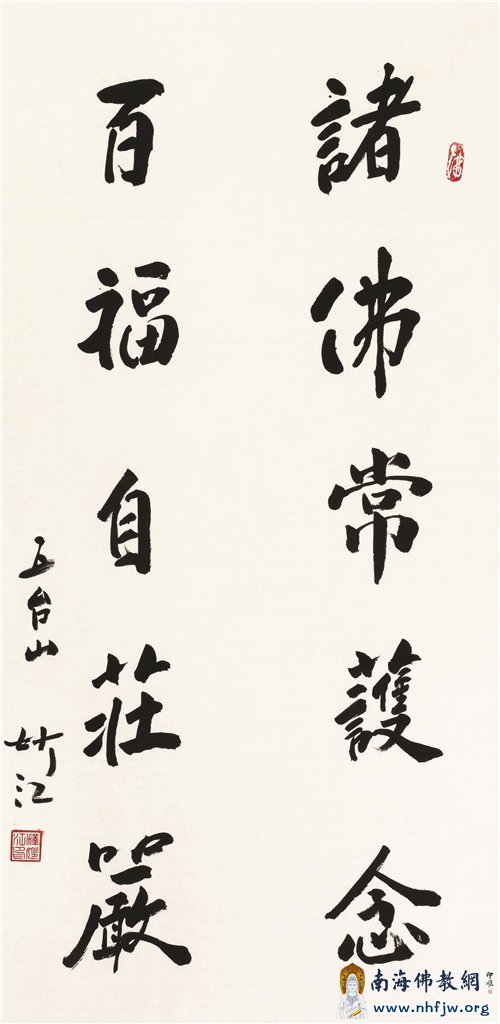 諸佛常護念
百福自莊嚴
五台山 妙江
南海佛教網
www.nhfjw.org